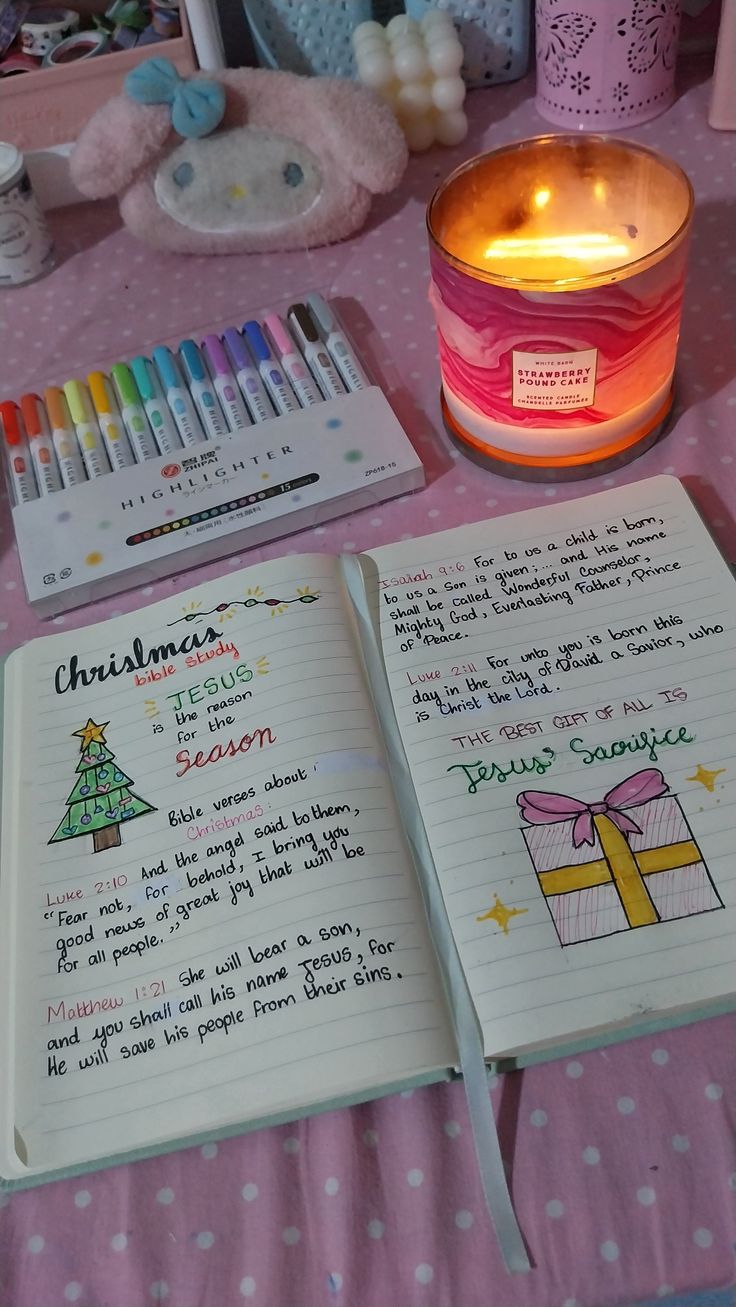 WHITE BARN
STRAWBERRY
POUND CAKE
SCENTED CANDLE
CHANDELLE PARFUMÉE
ZHIPAI
HIGHLIGHTER
ラインマーカー
15 colors
ZP618-15
Christmas
bible study
JESUS
is the reason
for the
Season
Bible verses about
Christmas:
Luke 2:10 And the angel said to them,
"Fear not, for behold, I bring you
good news of great joy that will be
for all people."
Matthew 1:21 She will bear a son,
and you shall call his name Jesus, for
He will save his people from their sins.
Isaiah 9:6 For to us a child is born,
to us a Son is given; ... and His name
shall be called Wonderful Counselor,
Mighty God, Everlasting Father, Prince
of Peace.
Luke 2:11 For unto you is born this
day in the city of David a Savior, who
is Christ the Lord.
THE BEST GIFT OF ALL IS
Jesus' Sacrifice